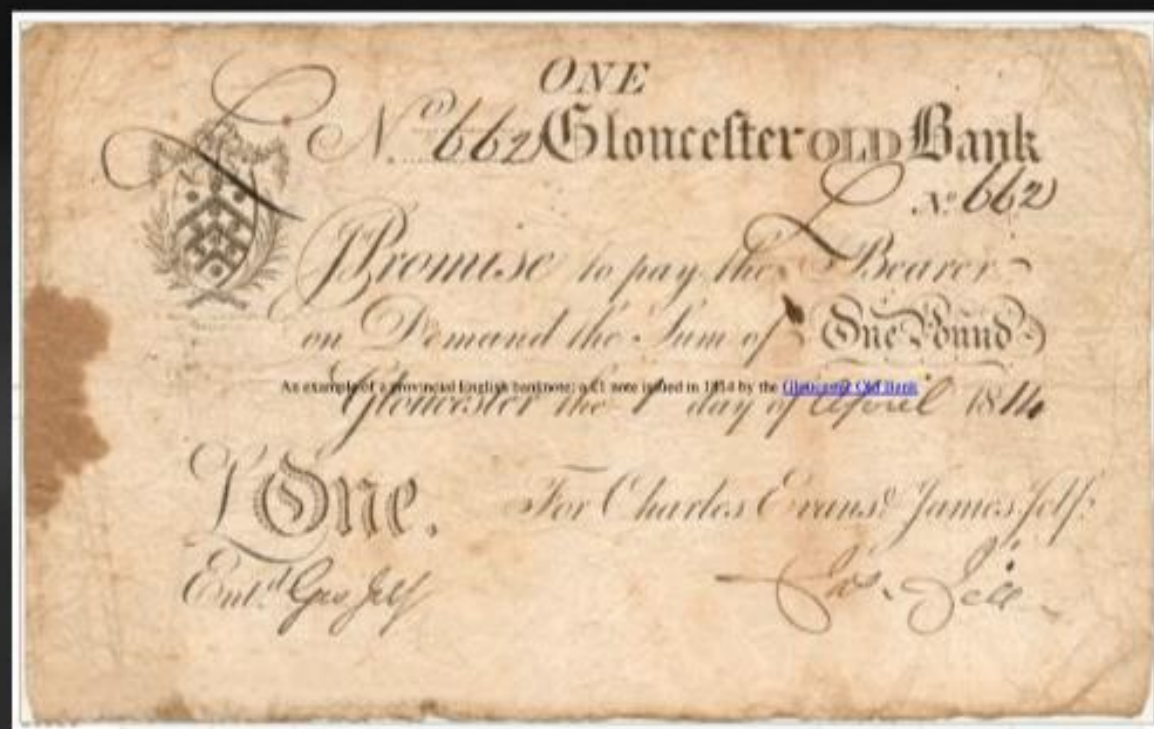 ONE
No. 662 Gloucester OLD Bank
No. 662
I Promise to pay the Bearer
on Demand the Sum of One Pound
An example of a provincial English banknote: a £1 note issued in 1814 by the Gloucester Old Bank
Gloucester the 1 day of April 1814
£ One.
For Charles Evans & James Jelf.
Entd. Geo Jelf
Jas. Jelf